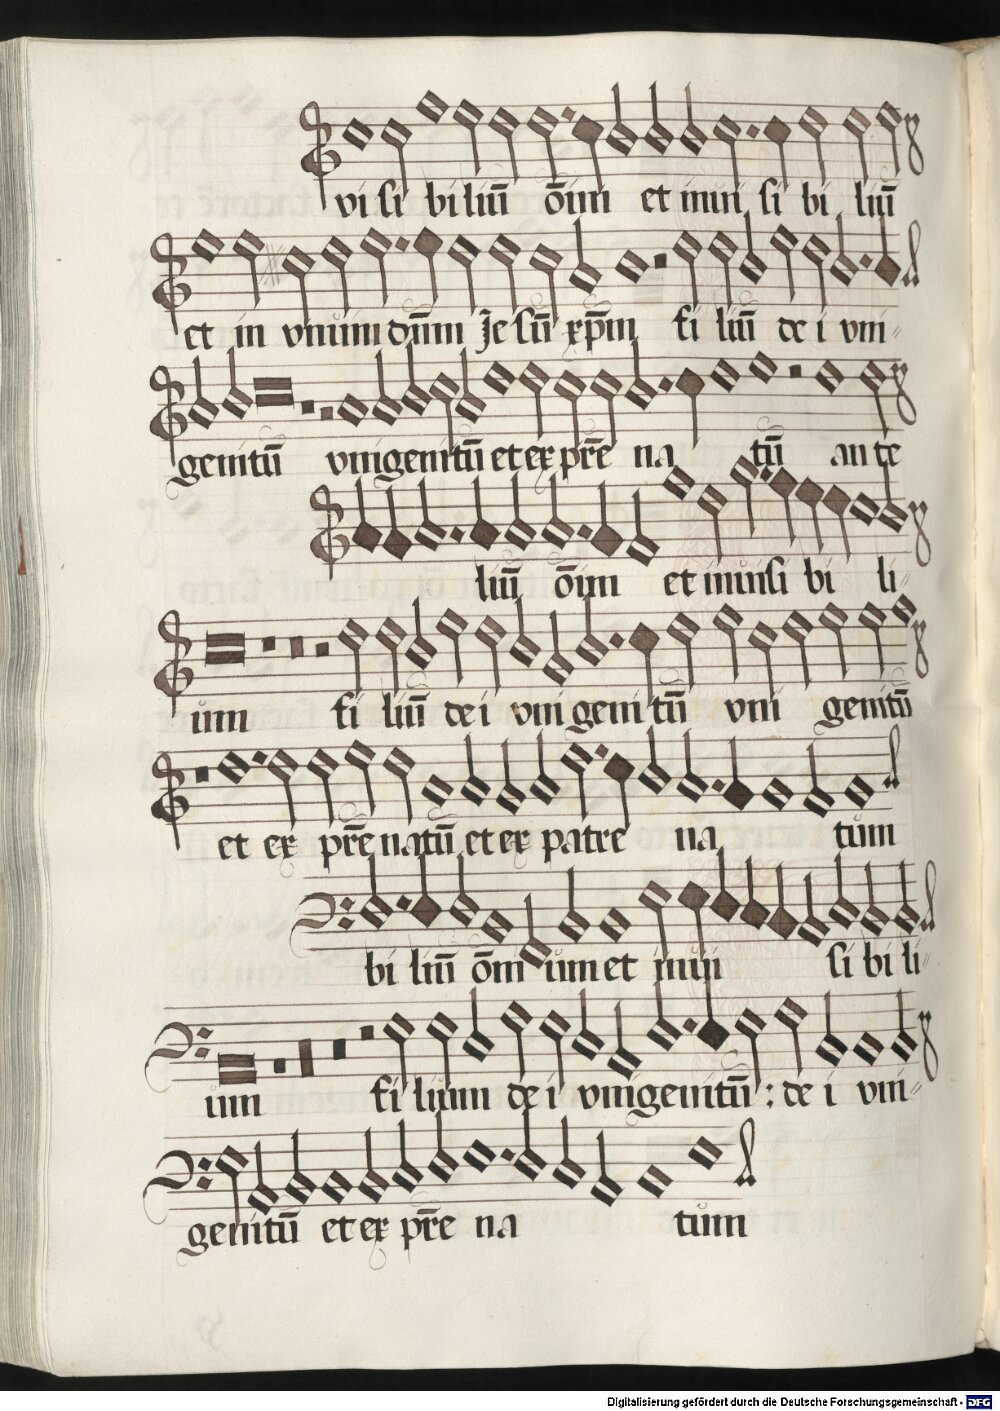 visi bi liū om̄i et inui si bi liū
et in vnum dn̄m Je sū xp̄m fi liū de i vni-
genitū vnigenitū et ex pr̄e na tū an te
liū om̄i et inuisi bi li-
um fi liū de i vni geni tū vni genitū
et ex pr̄e natū et ex patre na tum
bi liū om̄i um et inui si bi li-
um fi lium de i vnigenitū : de i vni-
genitū et ex pr̄e na tum
Digitalisierung gefördert durch die Deutsche Forschungsgemeinschaft - DFG